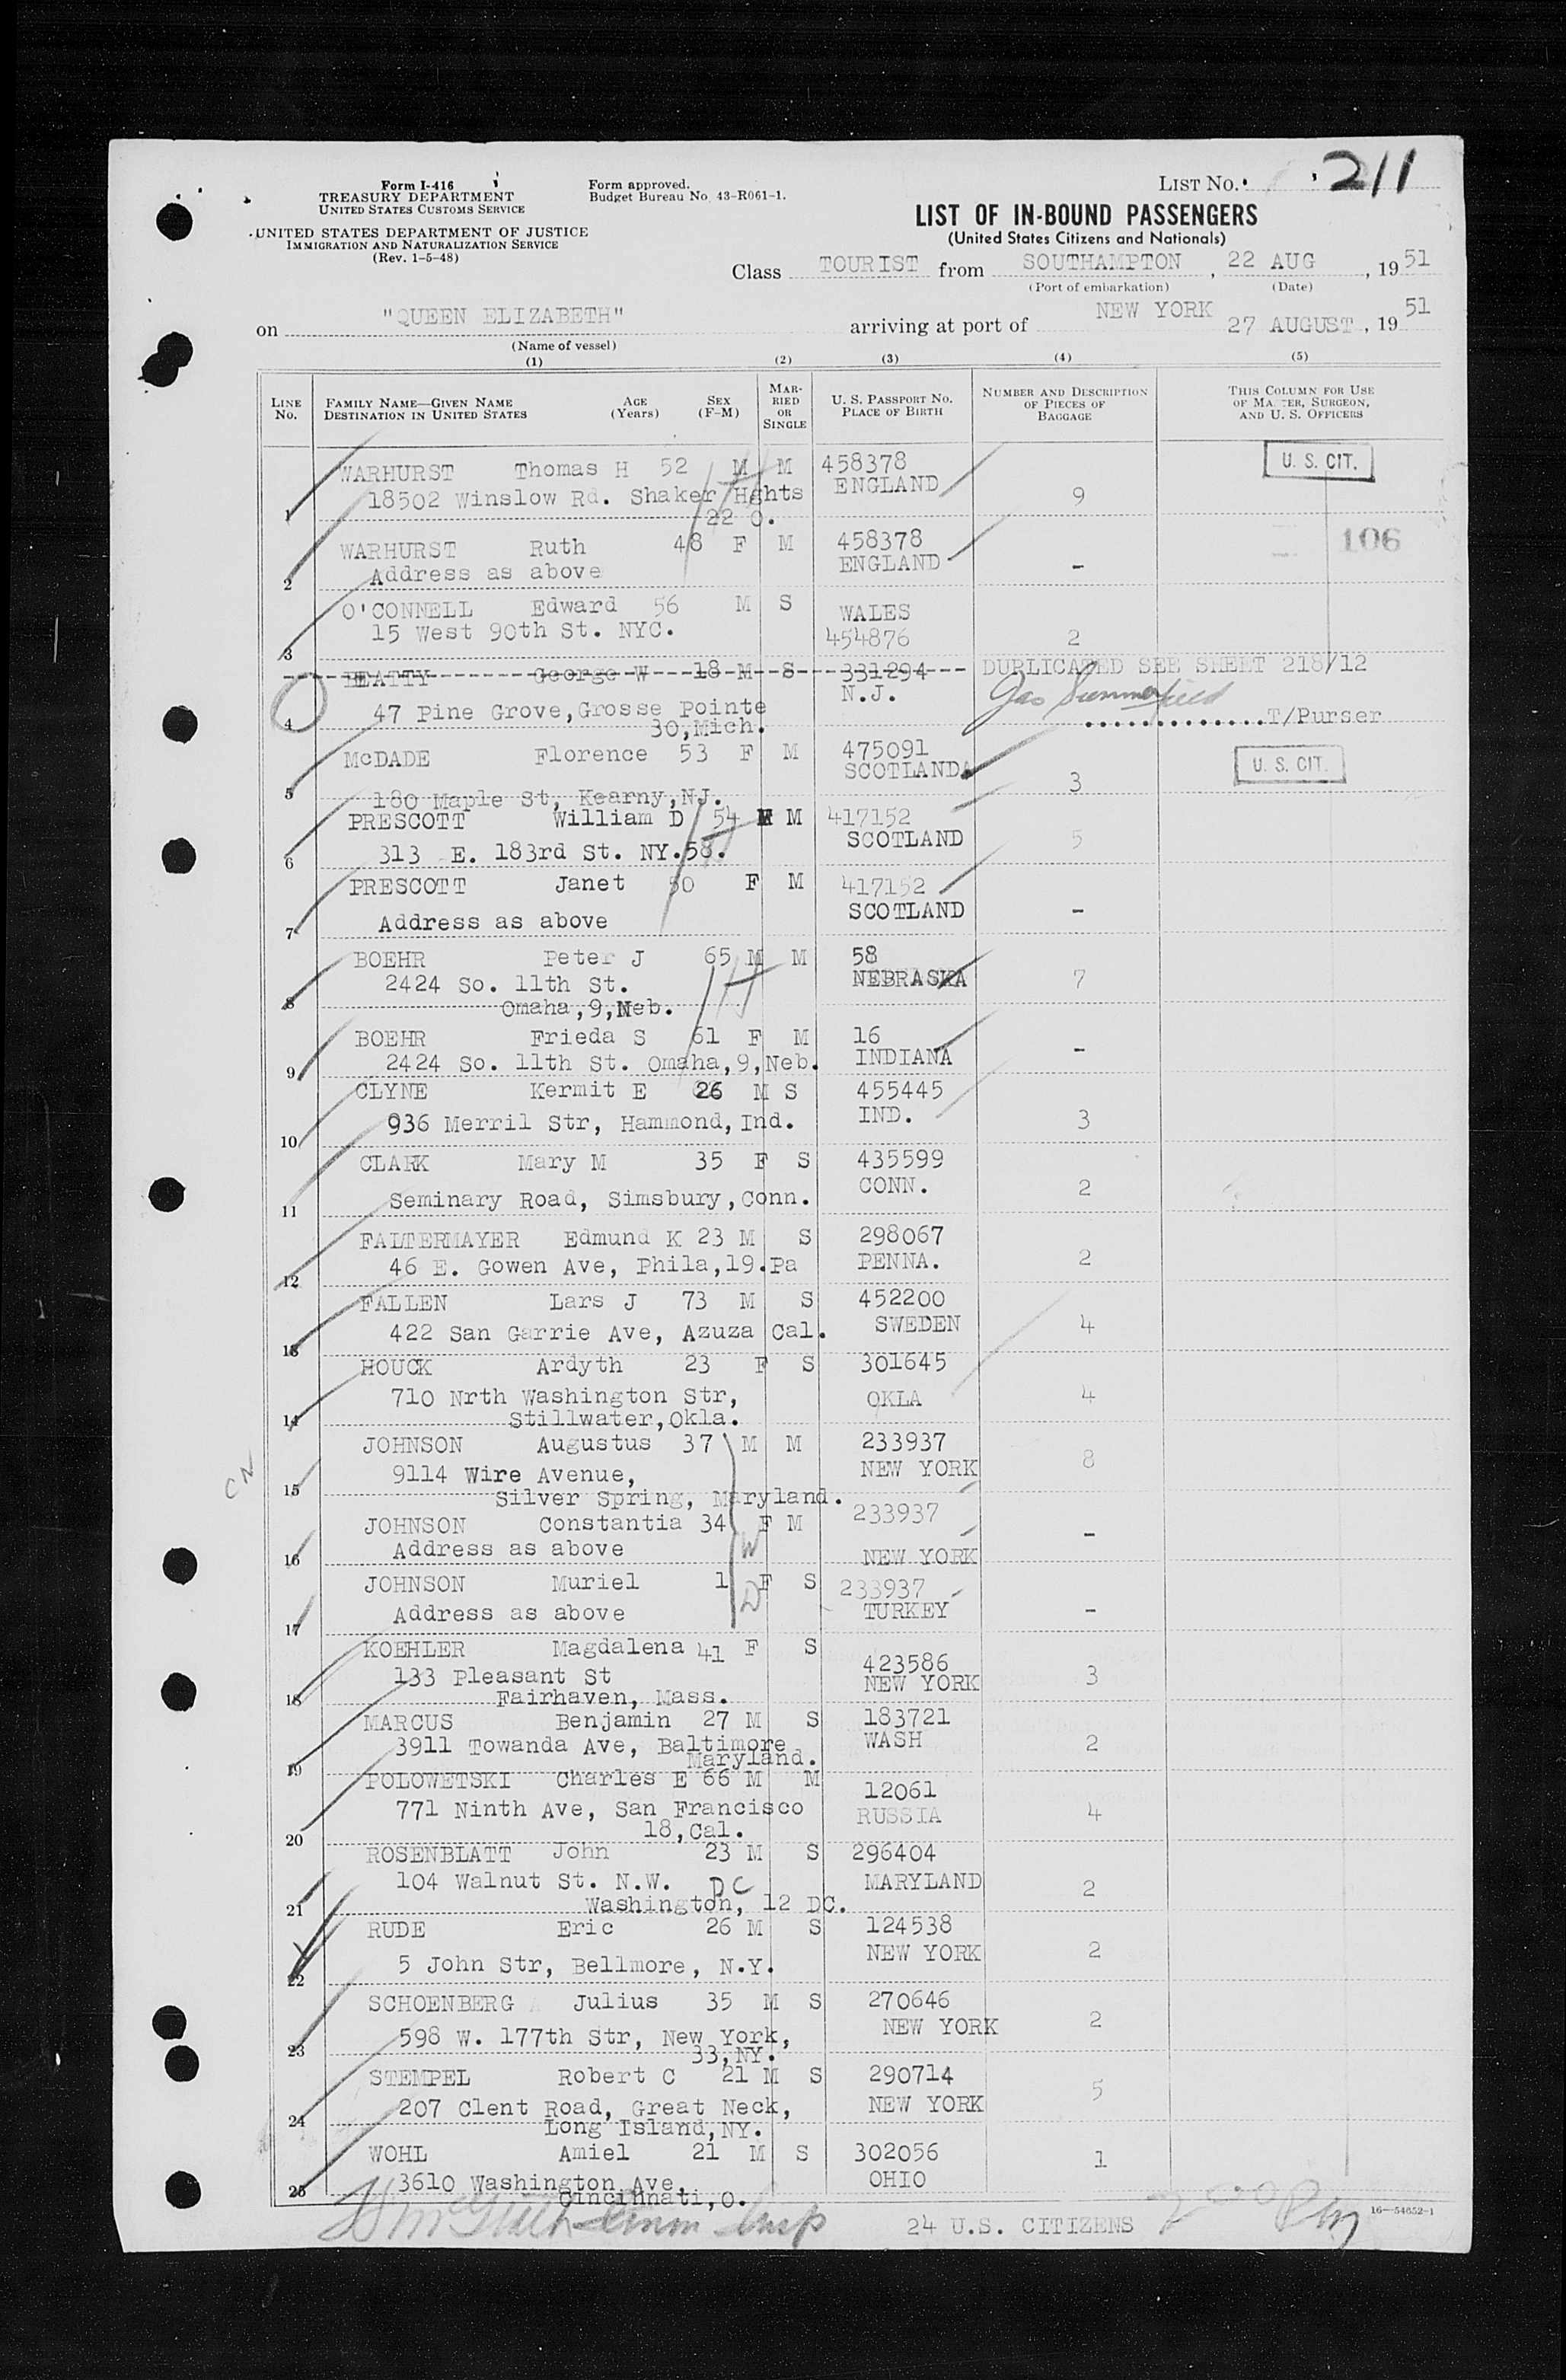 Form I-416
TREASURY DEPARTMENT
UNITED STATES CUSTOMS SERVICE
UNITED STATES DEPARTMENT OF JUSTICE
IMMIGRATION AND NATURALIZATION SERVICE
(Rev. 1-5-48)
Form approved.
Budget Bureau No. 43-R061-1.
LIST NO. 211
LIST OF IN-BOUND PASSENGERS
(United States Citizens and Nationals)
Class TOURIST from SOUTHAMPTON, 22 AUG, 1951
(Port of embarkation) (Date)
on "QUEEN ELIZABETH" arriving at port of NEW YORK 27 AUGUST, 1951
(Name of vessel)
(1) (2) (3) (4) (5)
LINE No. FAMILY NAME—GIVEN NAME DESTINATION IN UNITED STATES AGE (Years) SEX (F-M) MARRIED OR SINGLE U. S. PASSPORT NO. PLACE OF BIRTH NUMBER AND DESCRIPTION OF PIECES OF BAGGAGE THIS COLUMN FOR USE OF MASTER, SURGEON, AND U. S. OFFICERS
WARHURST Thomas H 52 M M 458378 U. S. CIT.
18502 Winslow Rd. Shaker Hghts ENGLAND 9
1 22 O.
WARHURST Ruth 48 F M 458378 106
Address as above ENGLAND -
2
O'CONNELL Edward 56 M S WALES
15 West 90th St. NYC. 454876 2
3
BEATTY George W 18 M S 331294 DUPLICATED SEE SHEET 218/12
N.J. Jas Summerfield
4 47 Pine Grove, Grosse Pointe ..............T/Purser
30, Mich.
McDADE Florence 53 F M 475091 U. S. CIT.
SCOTLAND 3
5 180 Maple St, Kearny, NJ.
PRESCOTT William D 54 M M 417152
6 313 E. 183rd St. NY.58. SCOTLAND 5
PRESCOTT Janet 50 F M 417152
7 Address as above SCOTLAND -
BOEHR Peter J 65 M M 58
2424 So. 11th St. NEBRASKA 7
8 Omaha, 9, Neb.
BOEHR Frieda S 61 F M 16
9 2424 So. 11th St. Omaha, 9, Neb. INDIANA -
CLYNE Kermit E 26 M S 455445
10 936 Merril Str, Hammond, Ind. IND. 3
CLARK Mary M 35 F S 435599
11 Seminary Road, Simsbury, Conn. CONN. 2
FALTERMAYER Edmund K 23 M S 298067
12 46 E. Gowen Ave, Phila, 19. Pa PENNA. 2
FALLEN Lars J 73 M S 452200
13 422 San Garrie Ave, Azuza Cal. SWEDEN 4
HOUCK Ardyth 23 F S 301645
710 Nrth Washington Str, OKLA 4
14 Stillwater, Okla.
JOHNSON Augustus 37 M M 233937
9114 Wire Avenue, NEW YORK 8
CN 15 Silver Spring, Maryland.
JOHNSON Constantia 34 F M 233937
16 Address as above W NEW YORK -
JOHNSON Muriel 1 F S 233937
17 Address as above D TURKEY -
KOEHLER Magdalena 41 F S 423586
133 Pleasant St NEW YORK 3
18 Fairhaven, Mass.
MARCUS Benjamin 27 M S 183721
3911 Towanda Ave, Baltimore WASH 2
19 Maryland.
POLOWETSKI Charles E 66 M M 12061
771 Ninth Ave, San Francisco RUSSIA 4
20 18, Cal.
ROSENBLATT John 23 M S 296404
104 Walnut St. N.W. DC MARYLAND 2
21 Washington, 12 DC.
RUDE Eric 26 M S 124538
22 5 John Str, Bellmore, N.Y. NEW YORK 2
SCHOENBERG Julius 35 M S 270646
598 W. 177th Str, New York, NEW YORK 2
23 33, NY.
STEMPEL Robert C 21 M S 290714
207 Clent Road, Great Neck, NEW YORK 5
24 Long Island, NY.
WOHL Amiel 21 M S 302056
3610 Washington Ave, OHIO 1
25 Cincinnati, O.
24 U.S. CITIZENS 200 Pm 16—54652-1